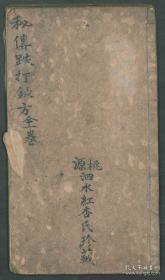 秘傳跌打鈹方全卷
桃源
泗水紅杏氏珍藏